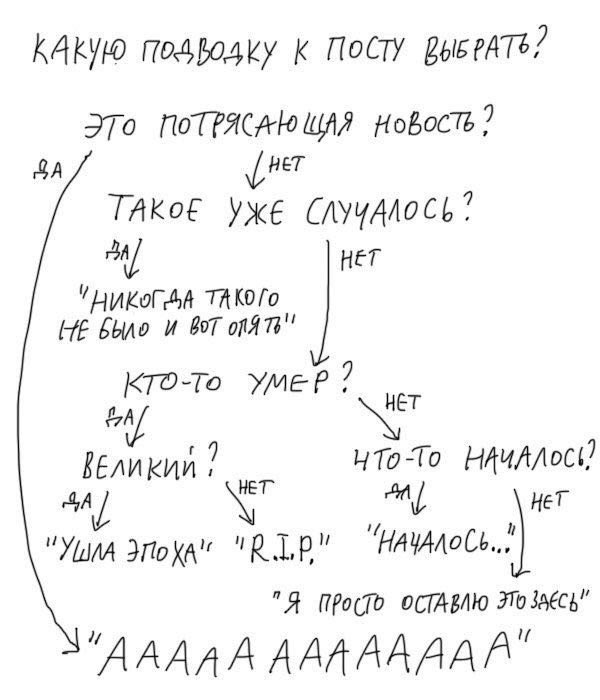 КАКУЮ ПОДВОДКУ К ПОСТУ ВЫБРАТЬ?
ЭТО ПОТРЯСАЮЩАЯ НОВОСТЬ?
ДА
НЕТ
ТАКОЕ УЖЕ СЛУЧАЛОСЬ?
ДА
НЕТ
"НИКОГДА ТАКОГО
НЕ БЫЛО И ВОТ ОПЯТЬ"
КТО-ТО УМЕР?
ДА
НЕТ
ВЕЛИКИЙ?
ЧТО-ТО НАЧАЛОСЬ?
ДА
НЕТ
ДА
НЕТ
"УШЛА ЭПОХА"
"R.I.P."
"НАЧАЛОСЬ..."
"Я ПРОСТО ОСТАВЛЮ ЭТО ЗДЕСЬ"
"ААААА ААААААААА"